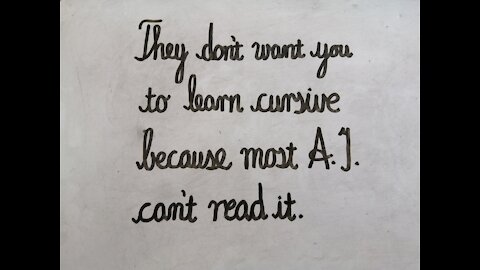 They don't want you
to learn cursive
because most A.I.
can't read it.